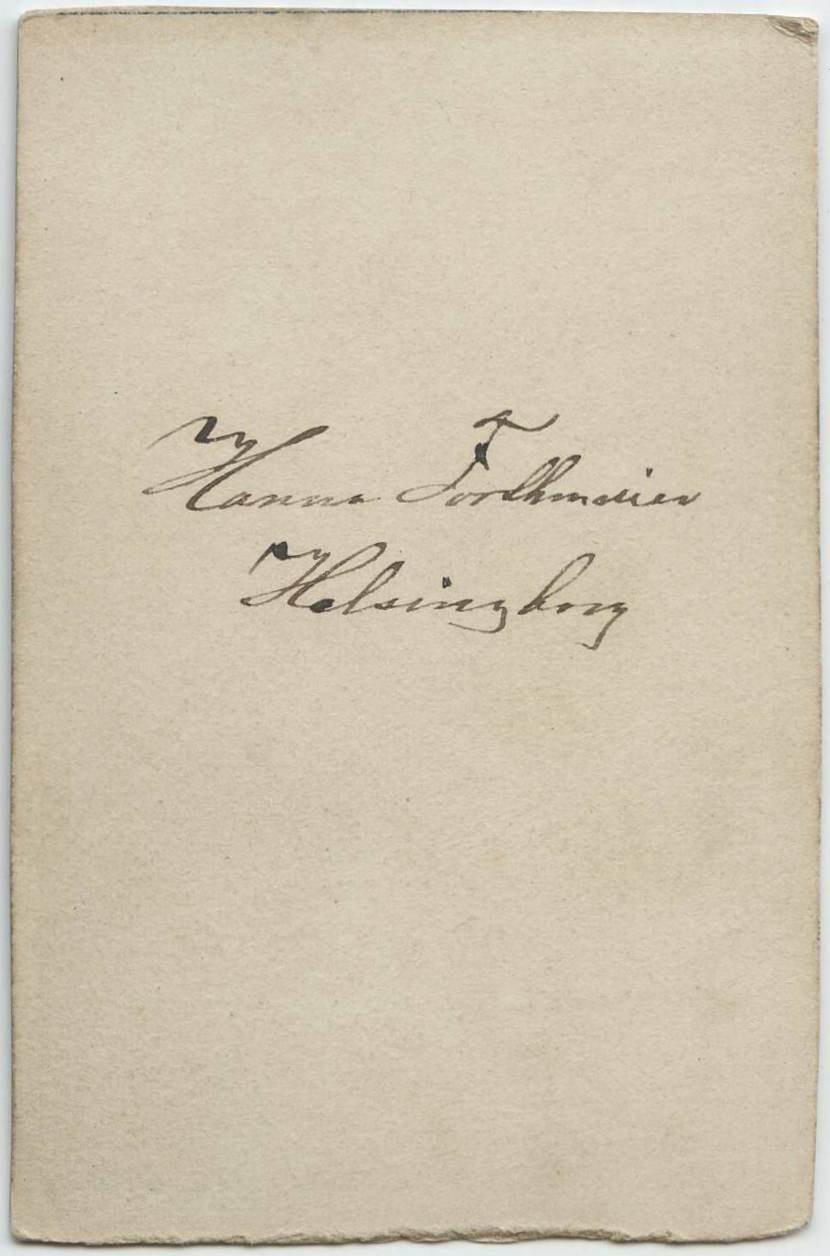 Hanna Forthmeiier
Helsingborg